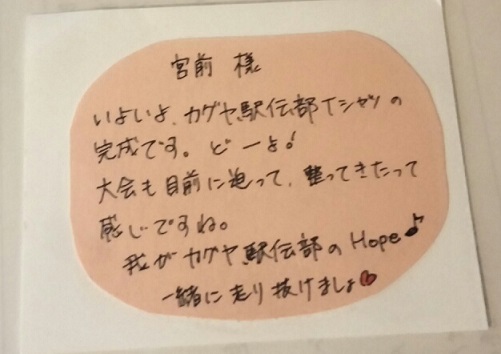 宮前 様
いよいよ、カグヤ駅伝部Tシャツの
完成です。どーよ!
大会も目前に迫って、整ってきたって
感じですね。
我がカグヤ駅伝部のHope♪
一緒に走り抜けましょ♥